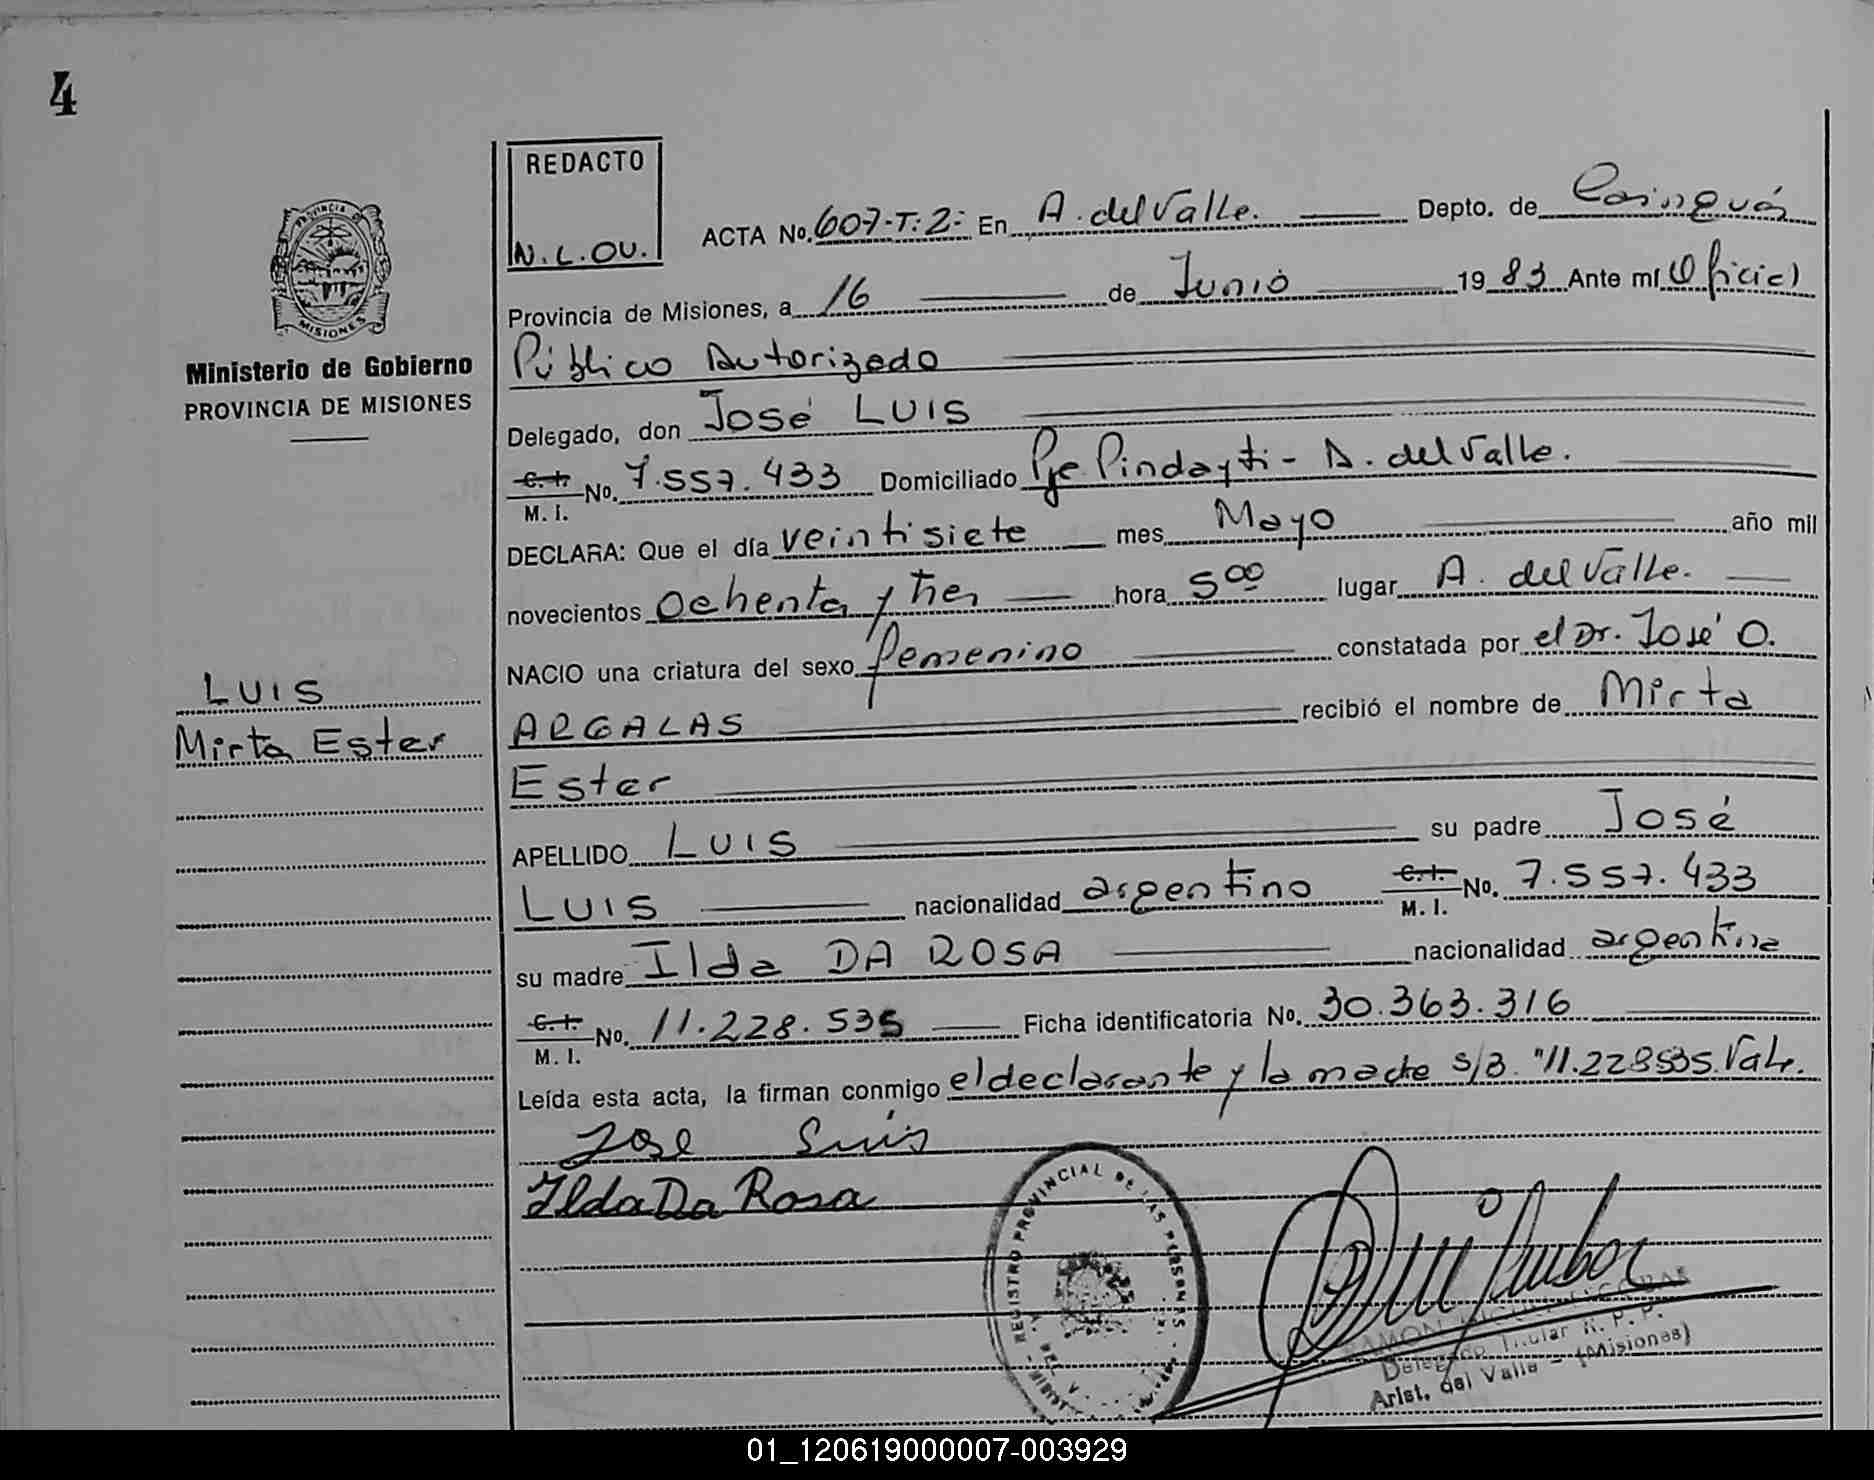 4
REDACTO
N.L.OV.
ACTA No. 607-T:2- En A. del Valle. Depto. de Cainguás
Provincia de Misiones, a 16 de Junio 1983 Ante mí (Oficial
Público Autorizado
Delegado, don José LUIS
C.I. M.I. No. 7.557.433 Domiciliado Pje Pindayti - A. del Valle.
DECLARA: Que el día veintisiete mes Mayo año mil
novecientos Ochenta y tres hora 5 00 lugar A. del Valle.
NACIO una criatura del sexo femenino constatada por el Dr. José O.
ARGALAS recibió el nombre de Mirta
Ester
APELLIDO LUIS su padre José
LUIS nacionalidad argentino C.I. M.I. No. 7.557.433
su madre Ilda DA ROSA nacionalidad argentina
C.I. M.I. No. 11.228.535 Ficha identificatoria No. 30.363.316
Leída esta acta, la firman conmigo el declarante y la madre s/B. "11.228535. Vale.
Jose Luis
Ilda Da Rosa
PROVINCIA DE
MISIONES
Ministerio de Gobierno
PROVINCIA DE MISIONES
LUIS
Mirta Ester
REGISTRO PROVINCIAL DE LAS PERSONAS
Delegado Titular R. P. P.
Arist. del Valle - (Misiones)
01_120619000007-003929